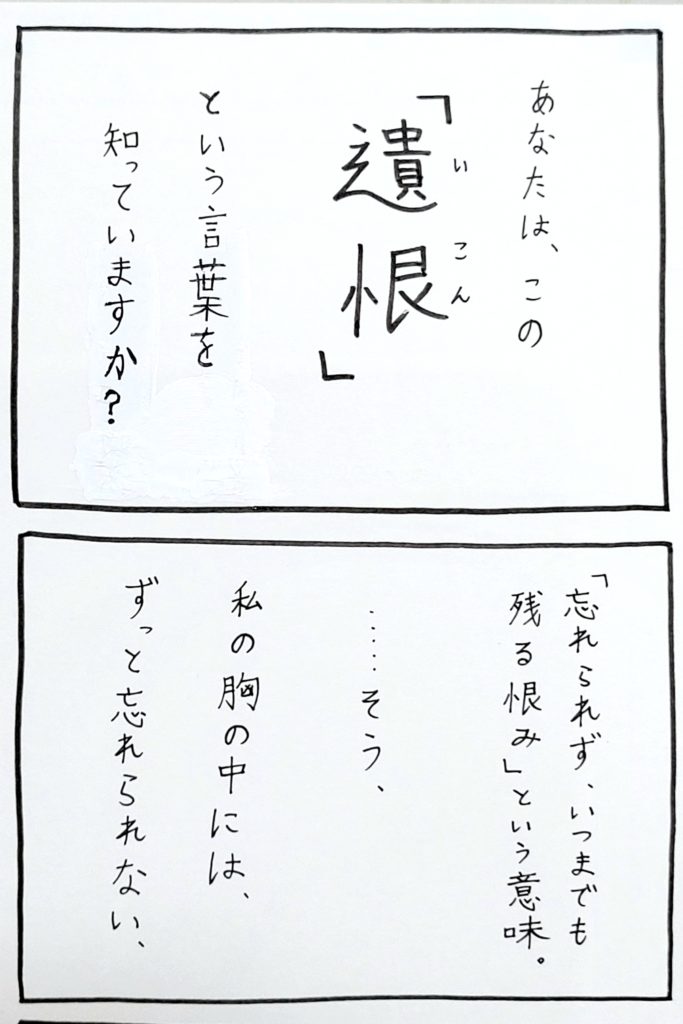 あなたは、この
「遺恨」
いこん
という言葉を
知っていますか?
「忘れられず、いつまでも
残る恨み」という意味。
……そう、
私の胸の中には、
ずっと忘れられない、